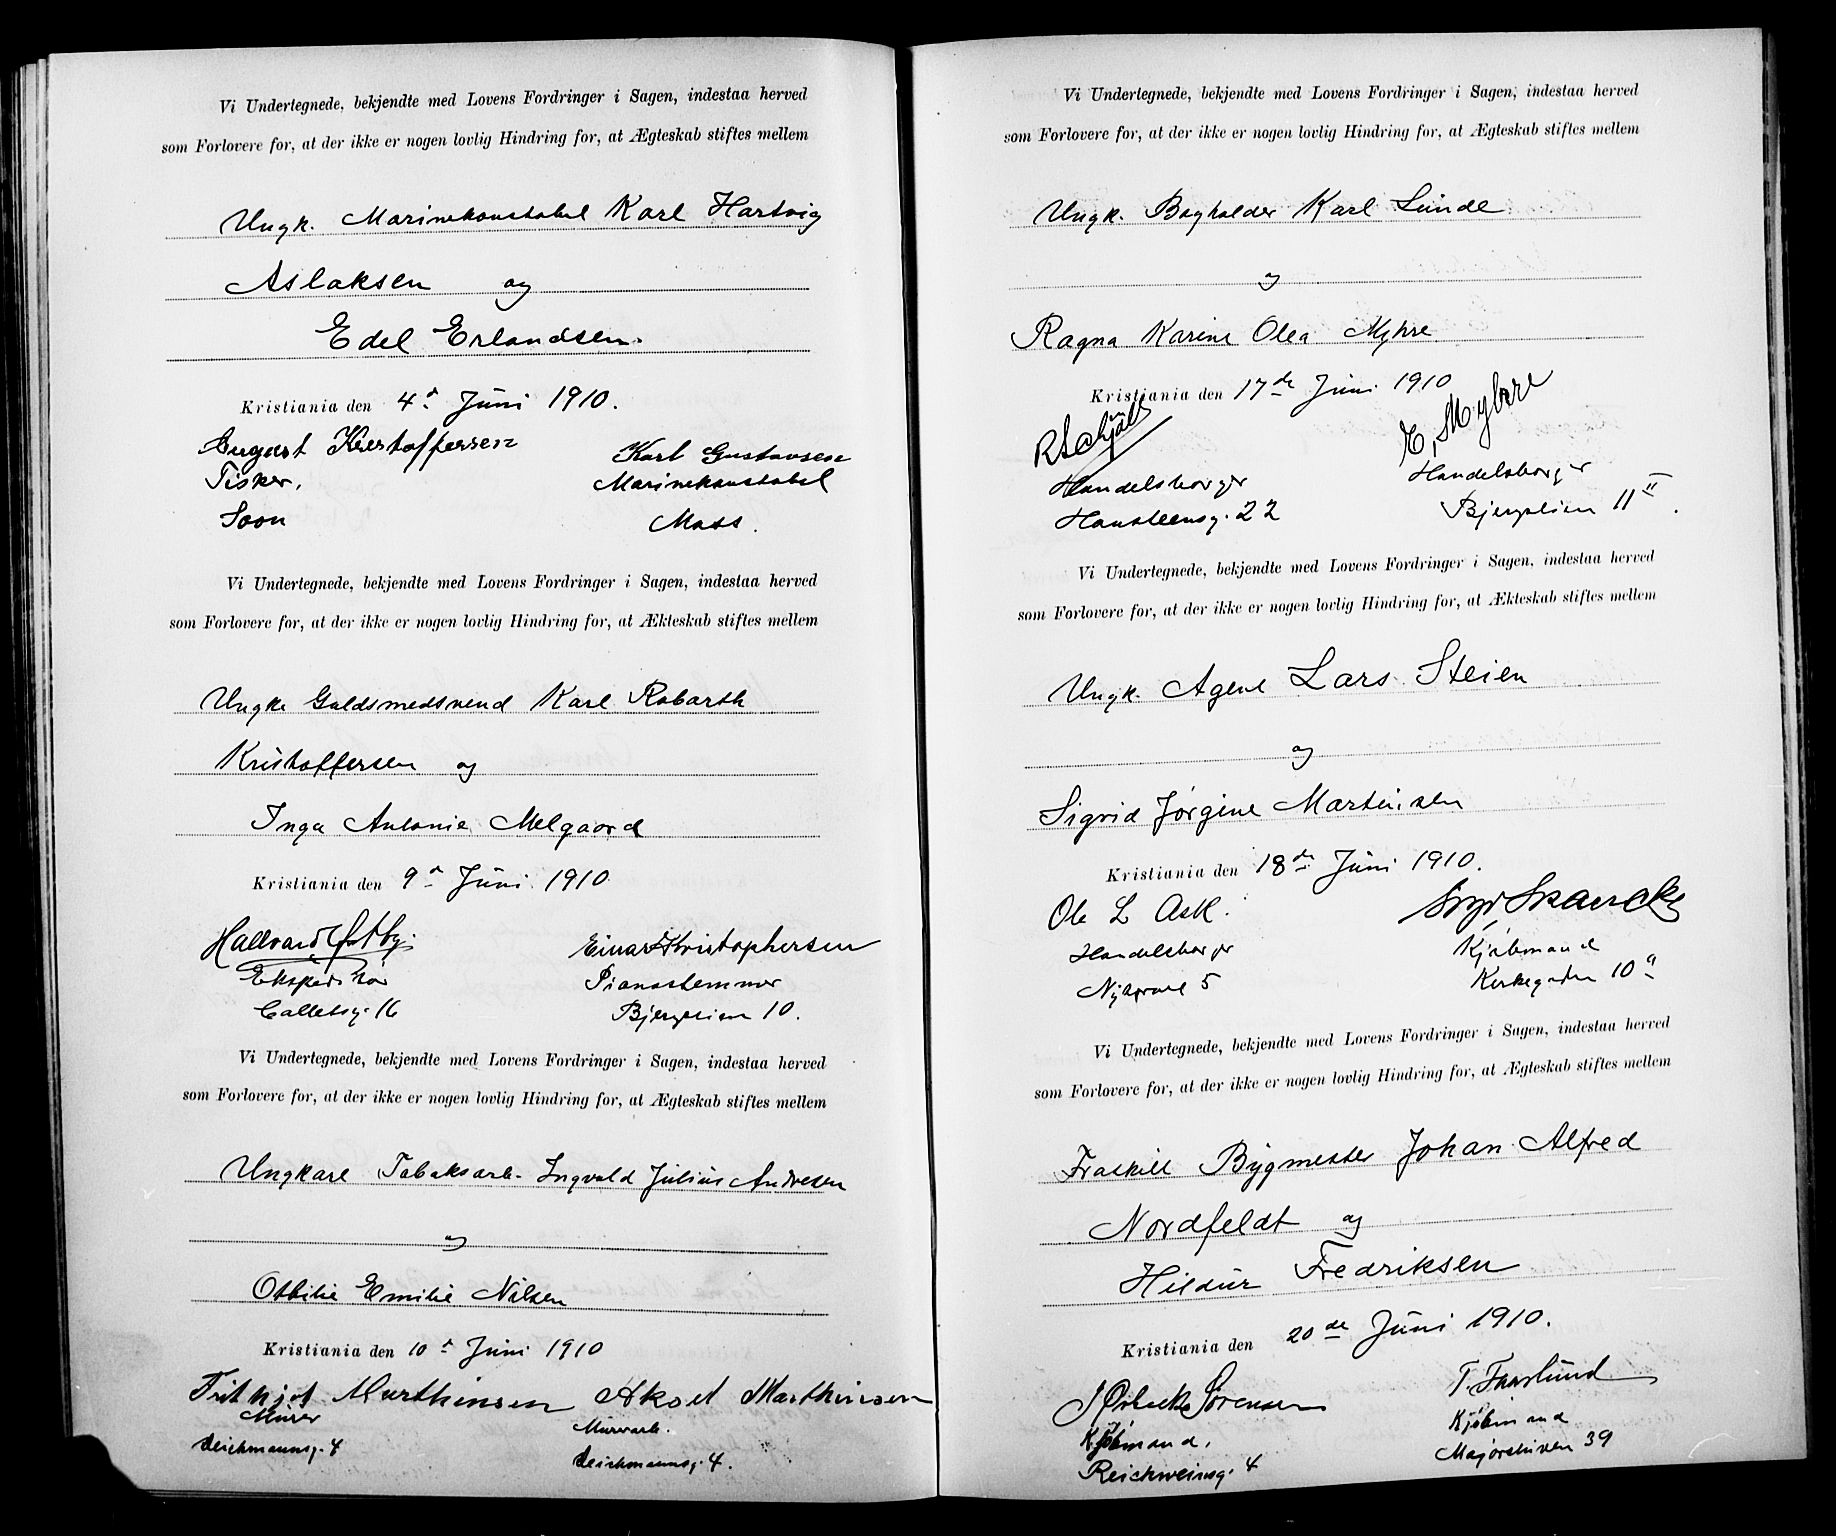 Vi Undertegnede, bekjendte med Lovens Fordringer i Sagen, indestaa herved
som Forlovere for, at der ikke er nogen lovlig Hindring for, at Ægteskab stiftes mellem
Ungk. Marinekonstabel Karl Hartvig
Aslaksen og
Edel Erlandsen.
Kristiania den 4d Juni 1910.
August Kristoffersen
Karl Gustavsen
Fisker,
Marinekonstabel
Soon
Moss.
Vi Undertegnede, bekjendte med Lovens Fordringer i Sagen, indestaa herved
som Forlovere for, at der ikke er nogen lovlig Hindring for, at Ækteskab stiftes mellem
Ungke Guldsmedsvend Karl Robarth
Kristoffersen og
Inga Antonie Melgaard
Kristiania den 9d Juni 1910
Hallvard Østby.
Einar Kristophersen
Ekspeditør
Pianostemmer
Calletsg. 16
Bjergslien 10.
Vi Undertegnede, bekjendte med Lovens Fordringer i Sagen, indestaa herved
som Forlovere for, at der ikke er nogen lovlig Hindring for, at Ægteskab stiftes mellem
Ungkarl Tobaksarb. Ingvald Julius Andresen
og
Ottilie Emilie Nilsen
Kristiania den 10d Juni 1910
Frithjof Marthinsen Aksel Marthinsen
Murer
Murarb.
Deichmannsg. 4
Deichmannsg. 4.
Vi Undertegnede, bekjendte med Lovens Fordringer i Sagen, indestaa herved
som Forlovere for, at der ikke er nogen lovlig Hindring for, at Ægteskab stiftes mellem
Ungk. Bogholder Karl Lunde
og
Ragna Karine Olea Myhre
Kristiania den 17de Juni 1910
E. Myhre
Handelsborger
Handelsborger
Hansteensg. 22
Bjergslien 11 II.
Vi Undertegnede, bekjendte med Lovens Fordringer i Sagen, indestaa herved
som Forlovere for, at der ikke er nogen lovlig Hindring for, at Ækteskab stiftes mellem
Ungk. Agent Lars Steien
og
Sigrid Jørgine Martinsen
Kristiania den 18de Juni 1910.
Ole L Ask.
Skancke
Handelsborger
Kjøbmand
5
Kirkegaden 10a
Vi Undertegnede, bekjendte med Lovens Fordringer i Sagen, indestaa herved
som Forlovere for, at der ikke er nogen lovlig Hindring for, at Ægteskab stiftes mellem
Fraskilt Bygmester Johan Alfred
Nordfeldt og
Hildur Fredriksen
Kristiania den 20de Juni 1910.
Sørensen
T. Faarlund
Kjøbmand,
Kjøbmand
Reichweinsg. 4
Majorstuven 39